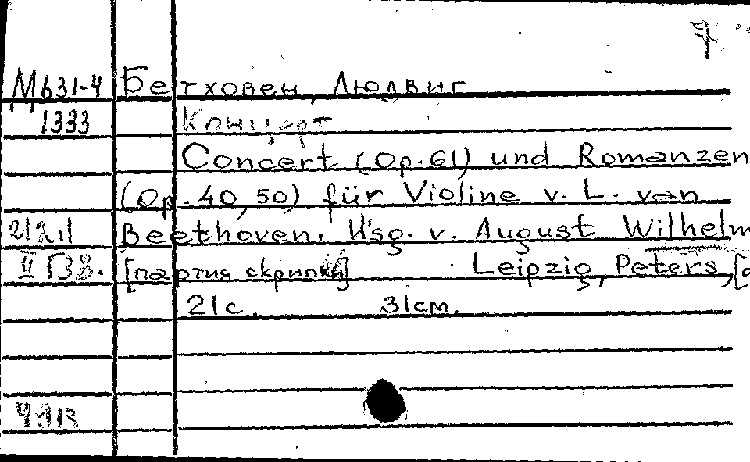 7
М631-4 Бетховен, Людвиг
1333 Концерт
Concert (Op. 61) und Romanzen
(Op. 40, 50) für Violine v. L. van
Beethoven. Hsg. v. August Wilhelm
[партия скрипки] Leipzig, Peters, [
21с. 31см.